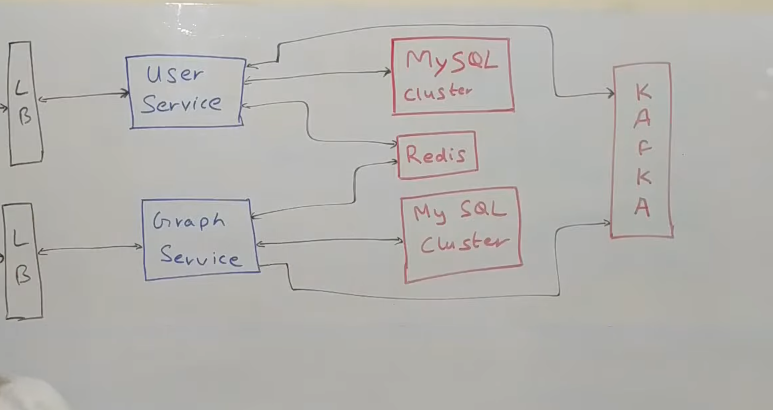 L
B
User
Service
MySQL
Cluster
Redis
K
A
F
K
A
L
B
Graph
Service
My SQL
Cluster